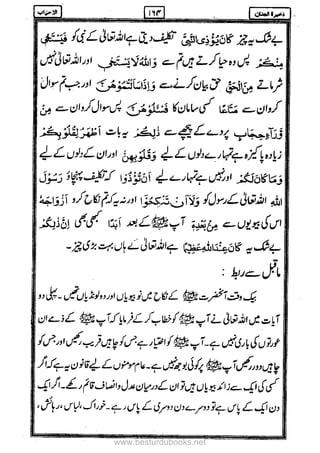 ذخیرۃ الجنان
۱۶۳
الاحزاب
بے شک یہ چیز كَانَ يُؤْذِى النَّبِىَّ تکلیف دیتی ہے اللہ تعالیٰ کے نبی کو فَيَسْتَحْىٖ
مِنْكُمْ پس وہ حیا کرتے ہیں تم سے وَاللّٰهُ لَا يَسْتَحْىٖ اور اللہ تعالیٰ نہیں
شرماتے مِنَ الْحَقِّ حق بیان کرنے سے وَاِذَا سَاَلْتُمُوْهُنَّ اور جب تم سوال
کرو ان سے مَتَاعًا کسی سامان کا فَسْـَٔلُوْهُنَّ پس سوال کرو ان سے مِنْ
وَّرَآءِ حِجَابٍ پردے کے پیچھے سے ذٰلِكُمْ یہ بات اَطْهَرُ لِقُلُوْبِكُمْ
زیادہ پاکیزہ ہے تمہارے دلوں کے لیے وَقُلُوْبِهِنَّ اور ان کے دلوں کے لیے
وَمَا كَانَ لَكُمْ اور نہیں ہے تمہارے لیے اَنْ تُؤْذُوْا کہ تکلیف پہنچاؤ رَسُوْلَ
اللّٰهِ اللہ تعالیٰ کے رسول کو وَلَآ اَنْ تَنْكِحُوْٓا اور نہ یہ کہ تم نکاح کرو اَزْوَاجَهٗ
اس کی بیویوں سے مِنْۢ بَعْدِهٖٓ آپ ﷺ کے بعد اَبَدًا کبھی بھی اِنَّ ذٰلِكُمْ
بے شک یہ كَانَ عِنْدَ اللّٰهِ عَظِيْمًا ہے اللہ تعالیٰ کے ہاں بہت بڑی چیز۔
ماقبل سے ربط :
بیک وقت آنحضرت ﷺ کے نکاح میں نو بیویاں اور دو لونڈیاں تھیں۔ پہلی دو
آیات میں اللہ تعالیٰ نے آپ ﷺ کو خطاب کر کے فرمایا کہ آپ ﷺ کے ذمے ان
عورتوں کی باری نہیں ہے۔ آپ ﷺ کو اختیار ہے جس کو چاہیں قریب رکھیں اور جس کو
چاہیں دور رکھیں آپ ﷺ پر کوئی بوجھ نہیں ہے۔ عام مومنوں کے لیے قانون یہ ہے کہ اگر
کسی کی ایک سے زائد بیویاں ہیں تو ان کے درمیان عدل وانصاف قائم رکھے۔ اگر ایک
دن ایک کے پاس ہے تو دوسرے دن دوسری کے پاس رہے۔ خوراک، لباس، رہائش،
www.besturdubooks.net